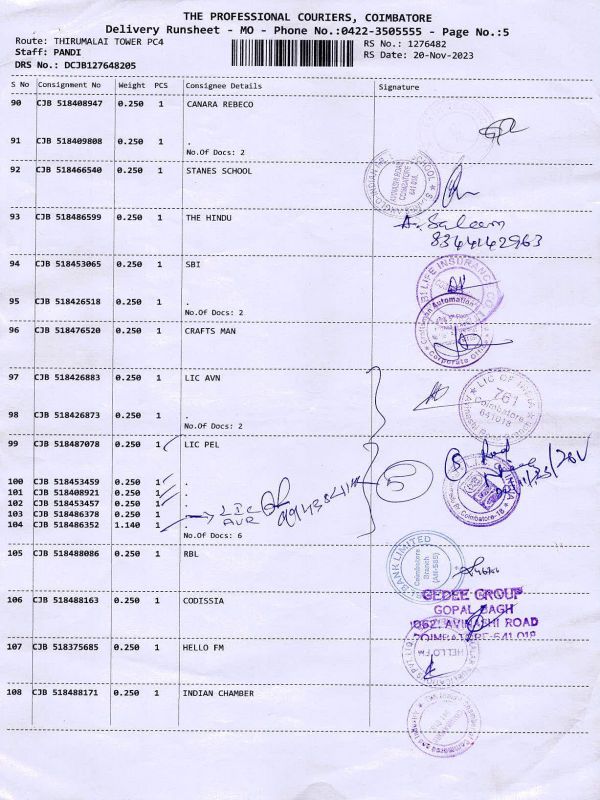 THE PROFESSIONAL COURIERS, COIMBATORE
Delivery Runsheet - MO - Phone No.:0422-3505555 - Page No.:5
Route: THIRUMALAI TOWER PC4 RS No.: 1276482
Staff: PANDI RS Date: 20-Nov-2023
DRS No.: DCJB127648205
S No Consignment No Weight PCS Consignee Details Signature
90 CJB 518408947 0.250 1 CANARA REBECO
91 CJB 518409808 0.250 1 .
No.Of Docs: 2
92 CJB 518466540 0.250 1 STANES SCHOOL
AVINASHI ROAD
COIMBATORE
641 018
93 CJB 518486599 0.250 1 THE HINDU
A. Saleem
8344142963
94 CJB 518453065 0.250 1 SBI
95 CJB 518426518 0.250 1 .
No.Of Docs: 2
96 CJB 518476520 0.250 1 CRAFTS MAN
Craftsman Automation
Corporate Office
97 CJB 518426883 0.250 1 LIC AVN
LIC OF INDIA
761
Coimbatore
641018
98 CJB 518426873 0.250 1 .
No.Of Docs: 2
99 CJB 518487078 0.250 1 LIC PEL
100 CJB 518453459 0.250 1 .
101 CJB 518408921 0.250 1 .
102 CJB 518453457 0.250 1 .
103 CJB 518486378 0.250 1 .
104 CJB 518486352 1.140 1 .
LIC
AVR
5
5
Coimbatore-18
No.Of Docs: 6
105 CJB 518488086 0.250 1 RBL
BANK LIMITED
Coimbatore
Branch
106 CJB 518488163 0.250 1 CODISSIA
GEDEE GROUP
GOPAL BAGH
1062, AVINASHI ROAD
COIMBATORE-641 018
107 CJB 518375685 0.250 1 HELLO FM
HELLO FM
108 CJB 518488171 0.250 1 INDIAN CHAMBER